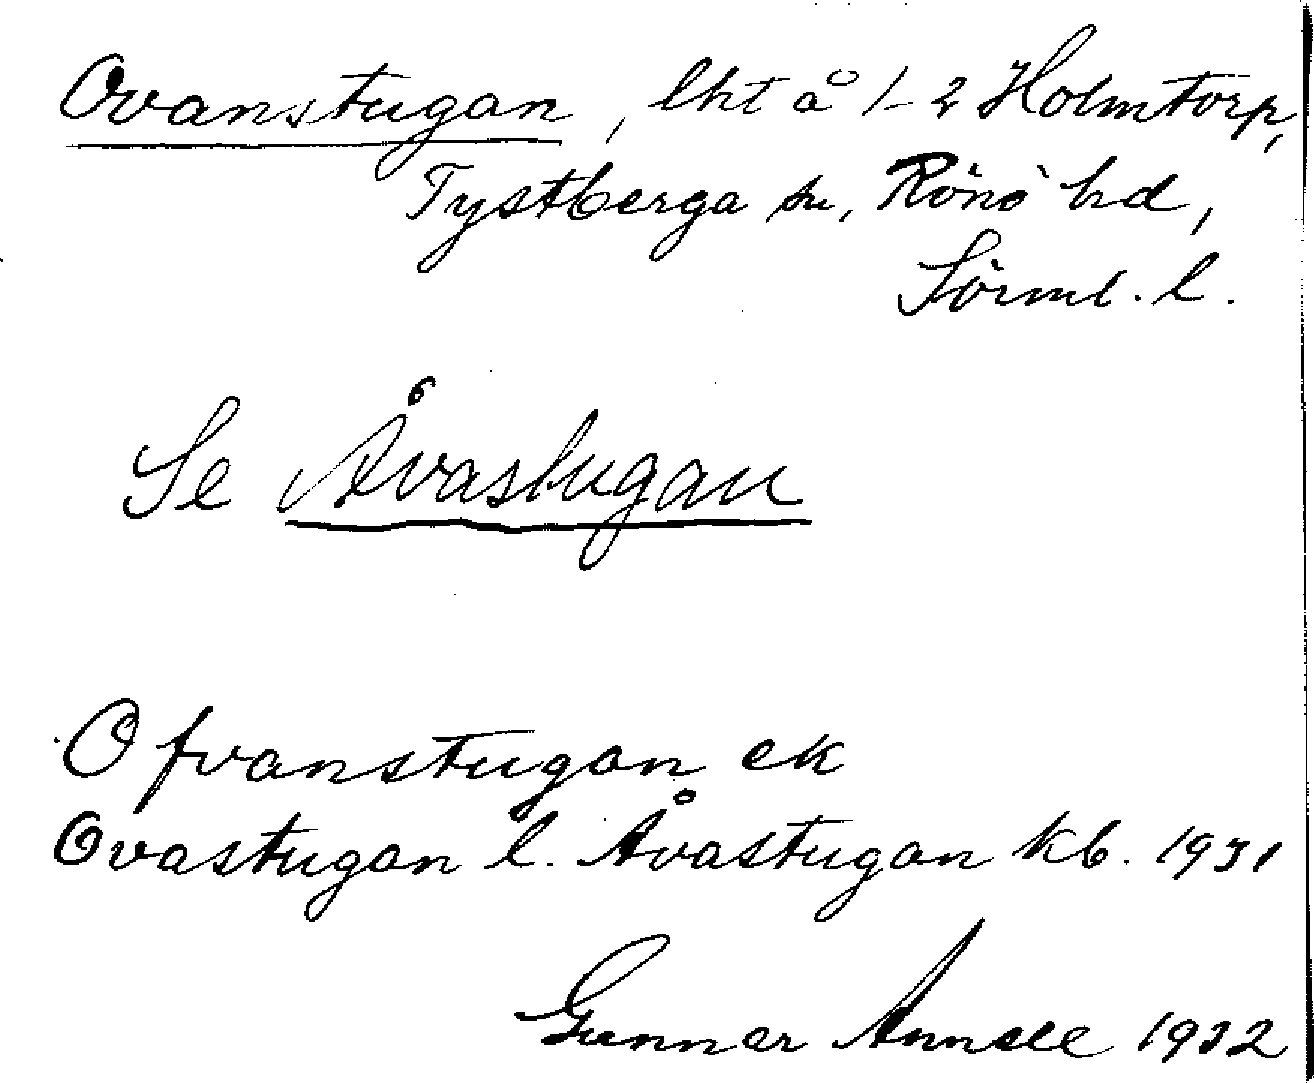 Ovanstugan, lht å 1-2 Holmtorp,
Tystberga sn, Rönö hd,
Sörml. l.
Se Åvastugan
Ofvanstugan ek
Ovastugan l. Åvastugan kb. 1931
Gunnar Annell 1932